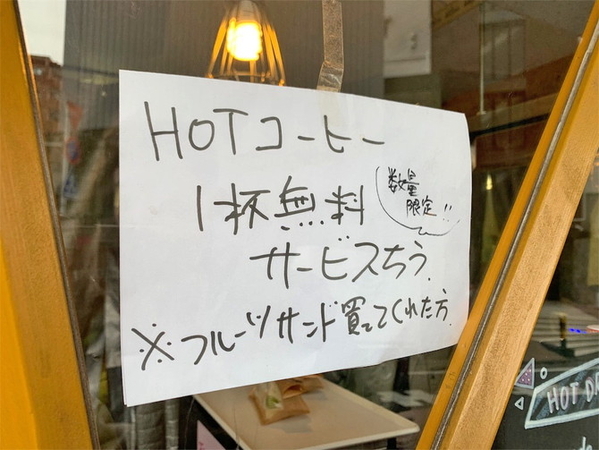 HOTコーヒー
1杯無料
数量
限定!!
サービスちう
※フルーツサンド買ってくれた方
HOT DR